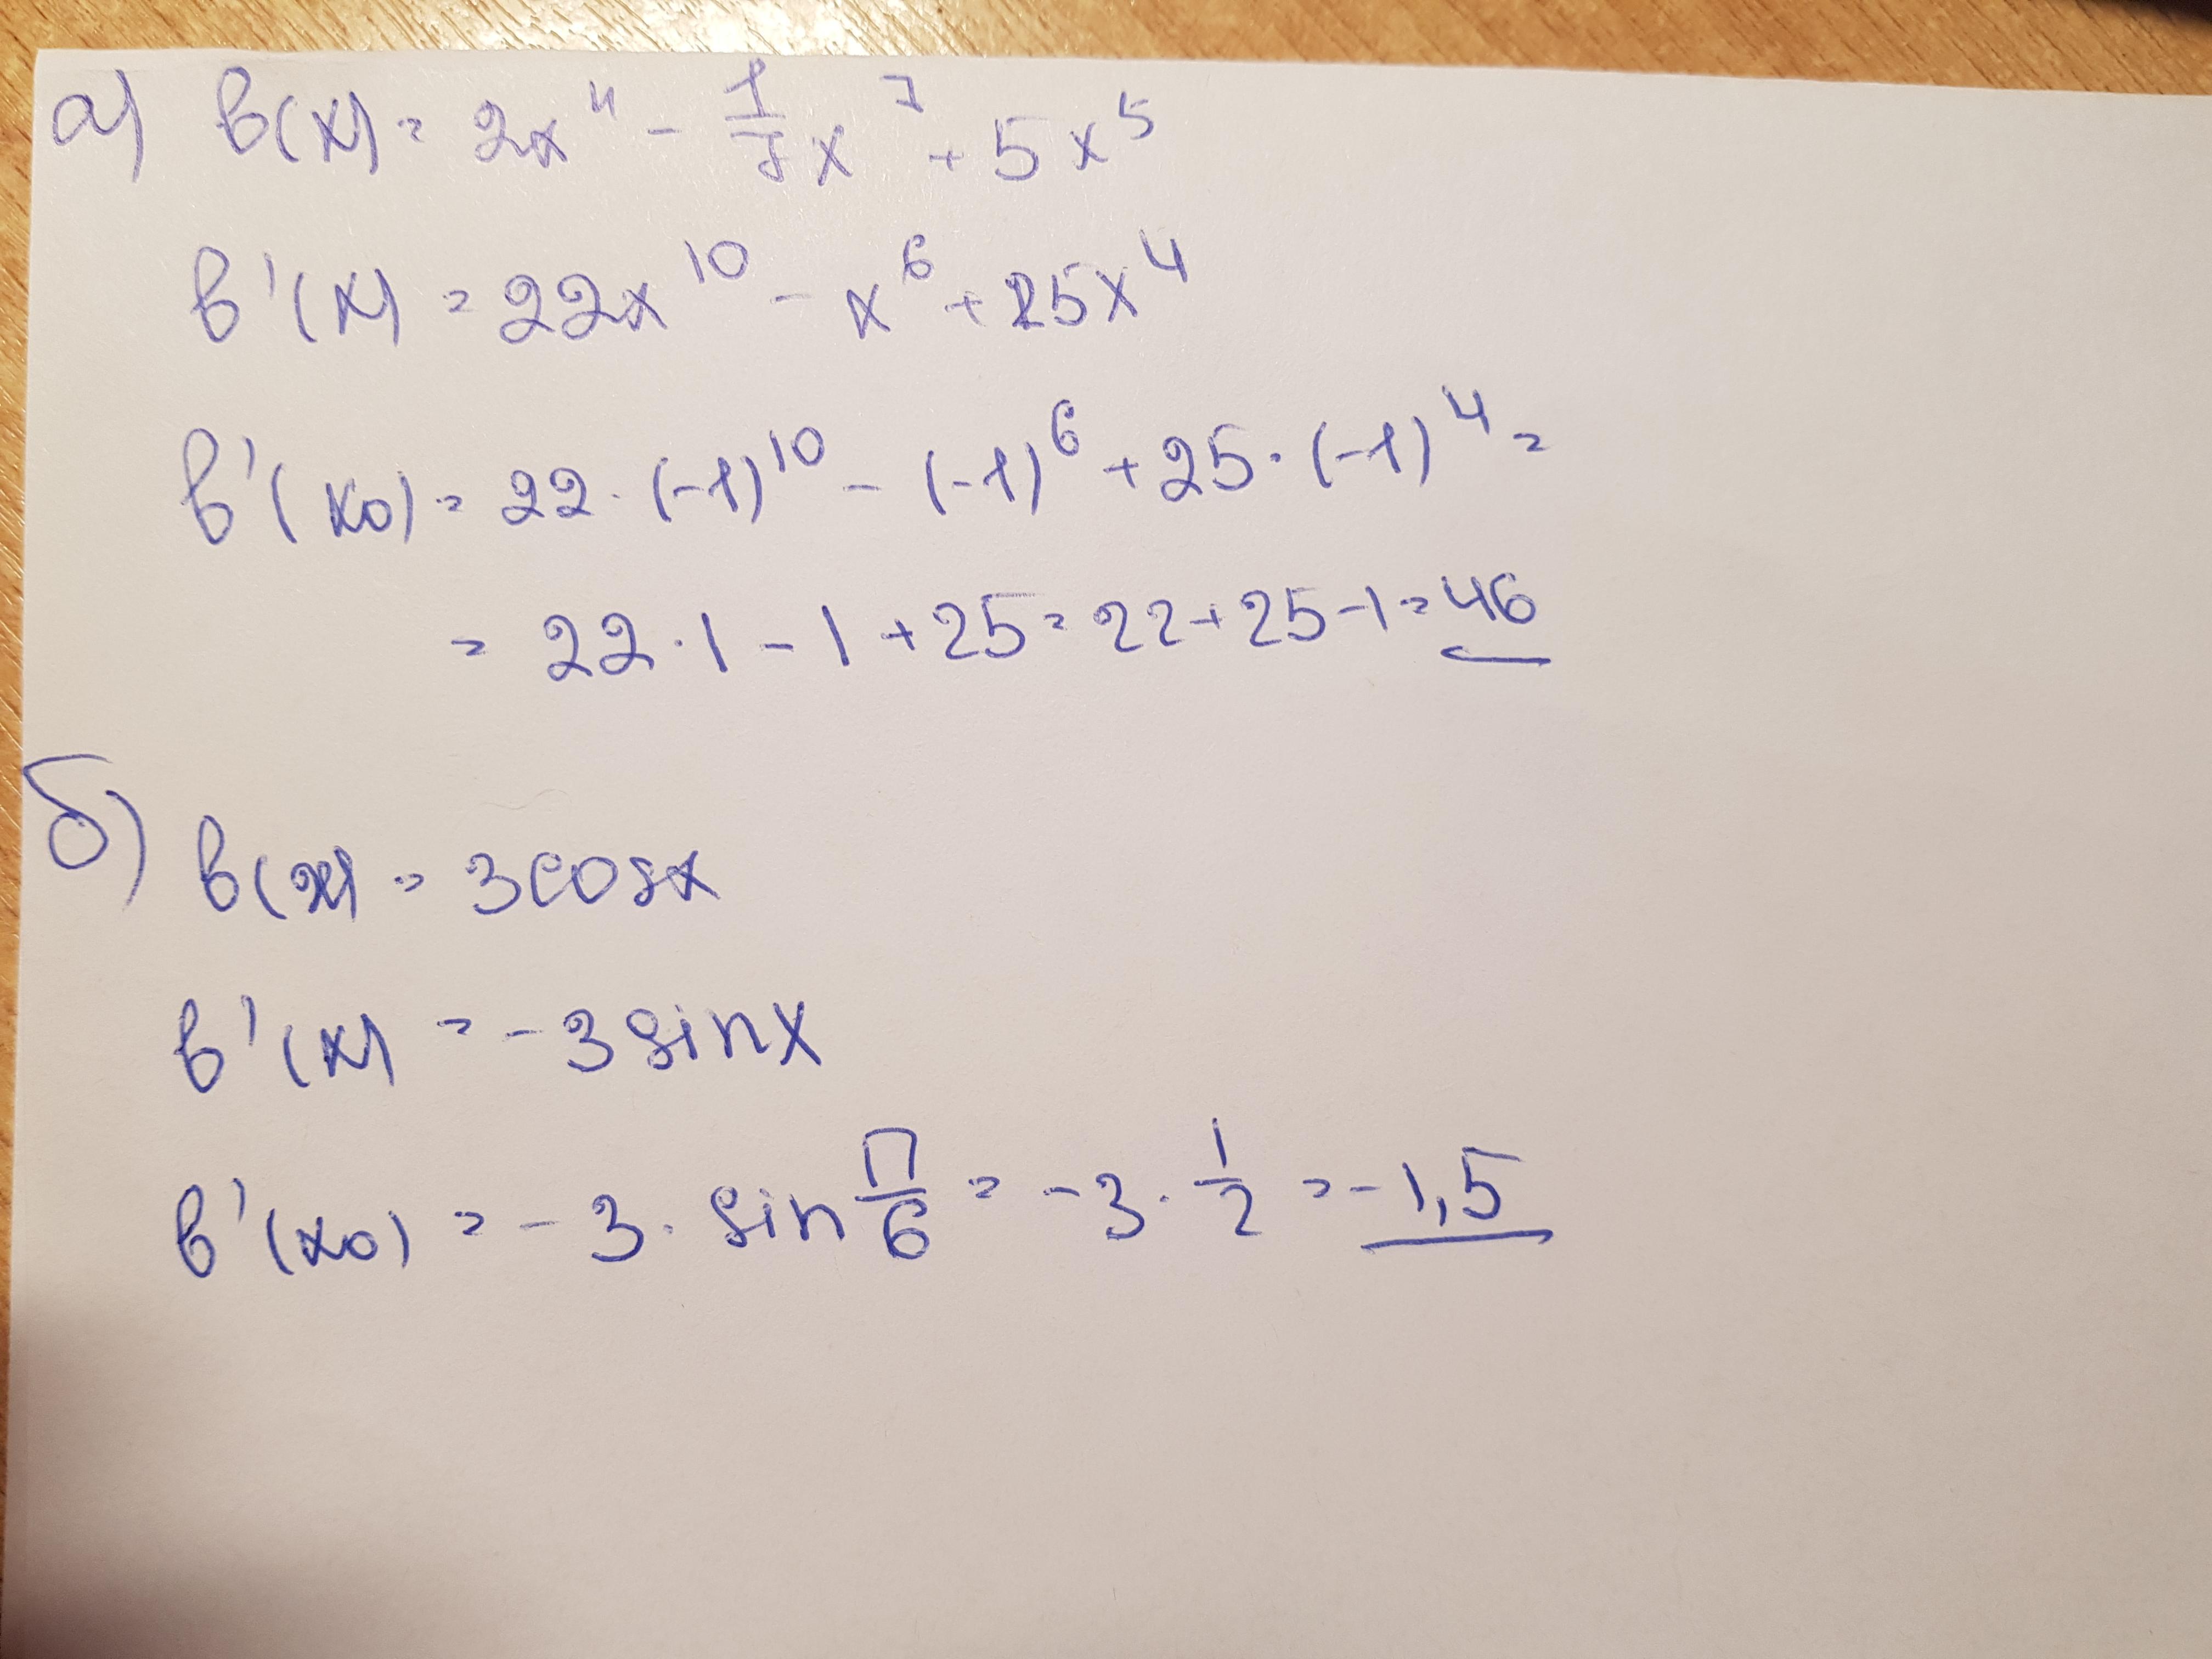 а) f(x) = 2x¹¹ - 1/7 x⁷ + 5x⁵
f'(x) = 22x¹⁰ - x⁶ + 25x⁴
f'(x₀) = 22 · (-1)¹⁰ - (-1)⁶ + 25 · (-1)⁴ =
= 22 · 1 - 1 + 25 = 22 + 25 - 1 = 46
б) f(x) = 3cosx
f'(x) = -3sinx
f'(x₀) = -3 · sin π/6 = -3 · 1/2 = -1,5